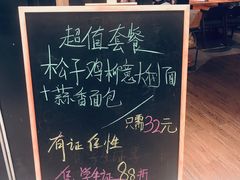 超值套餐
松子鸡柳意大利面
+蒜香面包
只需32元
有证任性
凭学生证88折